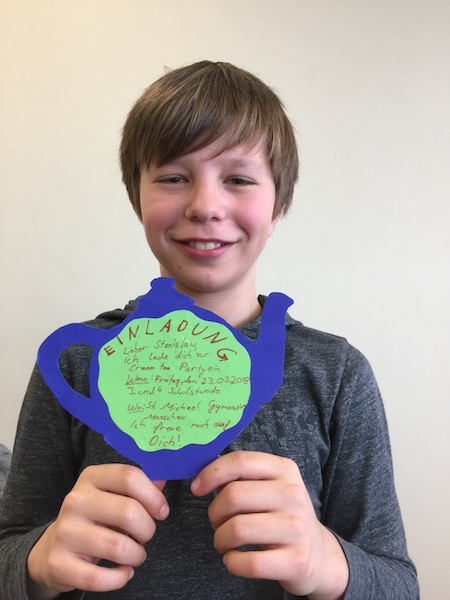 EINLADUNG
Lieber Stanislav,
ich lade dich zur
Cream Tea Party ein
Wann: Freitag, den 23.03.2018
3. und 4 Schulstunde
Wo: St. Michael Gymnasium
Monschau
Ich freue mich auf
Dich!